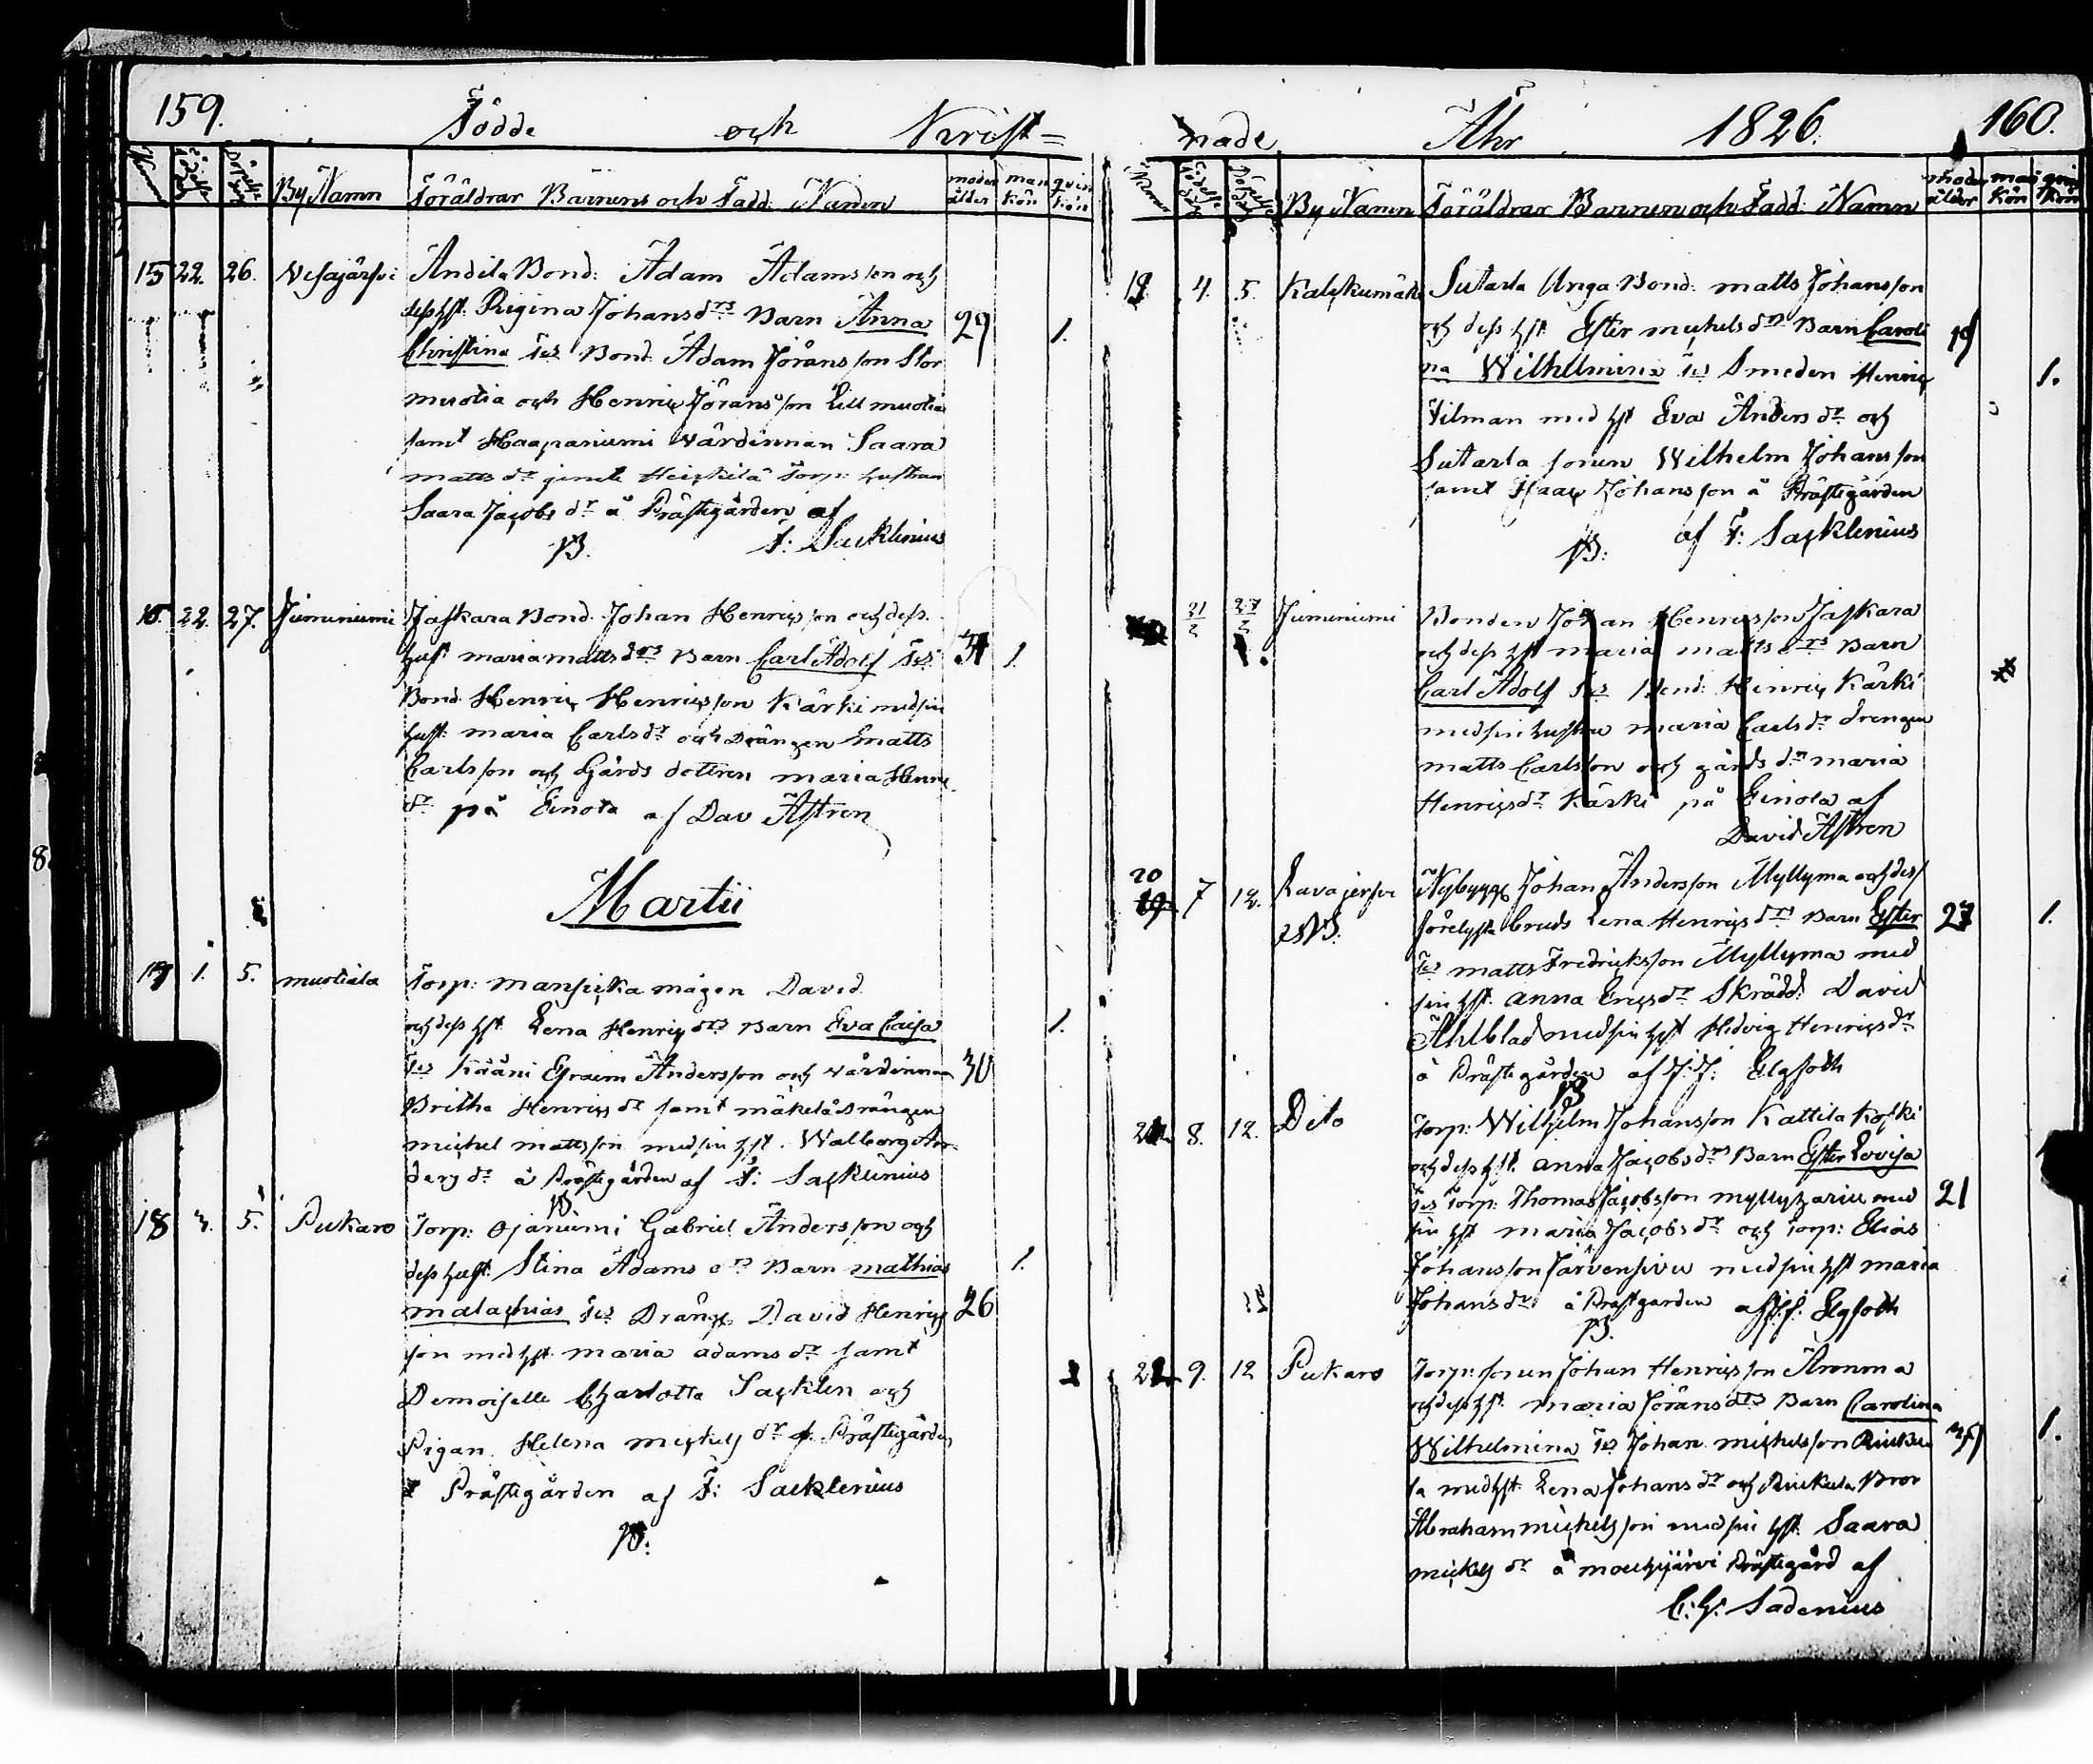 159.
Födde och Krist=
Numer Födelse dag Döpelse dag By Namn Föräldrar Barnens och Fadd: Namn moders ålder man kön qvin kön
15 22. 26. Vesajärvi Andila Bond: Adam Adamsson och
dess hst: Rigina Johansdrs Barn Anna 29 1.
Christina Tes Bond Adam Jöransson Stor
muotia och Henric Jöransson Lill muotia
samt Haapaniemi värdinnan Saara
matts dr jemte Heickilä Torp: hustrun
Saara Jacobs dr å Prästegården af
F: Sacklenius
16. 22. 27. Juminiemi Jaskara Bond. Johan Henricsson och dess
hust maria matts drs Barn Carl Adolf Tes 1.
Bond Henric Henricsson Kärki med sin
hust: maria Carls dr och Drängen matts
Carlsson och Gårds dottren maria Henri
dr på Einola af Dav Astren
Martii
17 1. 5. muotiala Torp: Mansicka mågen David
och dess hst Lena Henrics drs Barn Eva Caisa 1.
Tes Kääni Efraim Andersson och värdinnan 30
Britha Henrics dr samt mäkelä Drängen
michel mattsson med sin hst. Walborg An-
ders dr å Prästegården af F: Sacklenius
18 3. 5. Pukaro Torp: Ojaniemi Gabriel Andersson och
dess hust: Stina Adams drs Barn mathias 1.
malachias Tes Dräng David Henrics 26
son med hst maria adams dr samt
Demoiselle Charlotta Sacklen och
Pigan Helena michels dr Prästegården
Prästegården af F: Sacklenius
nade Åhr 1826. 160.
Numer Födelse dag Döpelse dag By Namn Föräldrar Barnen och Fadd: Namn moders ålder man kön qvin kön
19 4. 5. Kalckumäki Sutarla Unga Bond: matts Johansson
och dess hst Ester michels drs Barn Caroli 19
na Wilhelmina Tes Smeden Henric 1.
Tilman med hst Eva Anders dr och
Sutarla sonen Wilhelm Johansson
samt Isaac Johansson å Prästegården
af F: Sacklenius
21/2 27/2 Juminiemi Bonden Johan Henricsson Jaskara
och dess hst maria matts drs Barn
Carl Adolf Tes Bond: Henric Kärki
med sin hustru maria Carls dr drengen
matts Carlsson och gårds dr maria
Henrics dr Kärki på Einola af
David Astren
20 7 12. Lavajervi Nybygg Johan Andersson Myllyma och dess
förelysta Bruds Lena Henrics drs Barn Ester 27 1.
Tes matts Fredricksson Myllyma med
sin hst anna Erics dr Skrädd: David
Ahlblad med sin hst Hedvig Henrics dr
å Prästegården af J: J: Elgfoth
8. 12. Dito Torp: Wilhelm Johansson Kattila koski
och dess hst anna Jacobs drs Barn Ester Lovisa
Tes Torp: Thomas Jacobsson myllyhariu med 21
sin hst maria Jacobs dr och Torp: Elias
Johansson Järvensivu med sin hst maria
Johans dr å Prästgården af J: J: Elgfoth
22 9. 12 Pukaro Torp: sonen Johan Henricsson Aronma
och dess hst maria Jörans drs Barn Carolina
Wilhelmina Tes Johan michelsson Riuku 1.
la med hst Lena Johans dr och Riukula Bror
Abraham michelsson med sin hst Saara
mickels dr å mouhijärvi Prästegård af
C: G: Sadenius